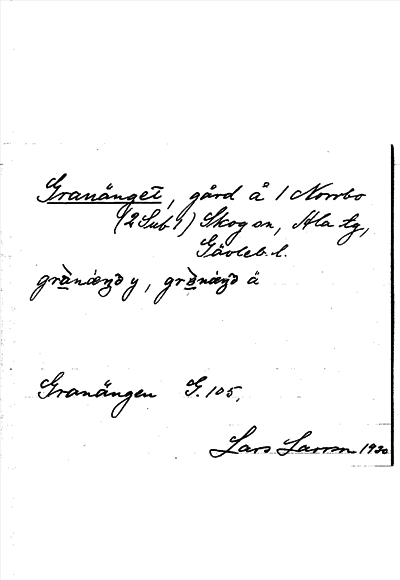 Granänget, gård å 1 Norrbo
(2 Sub 1) Skog sn, Ala tg,
Gävleb. l.
y, ä
Granängen G. 105,
Lars Larson 1930